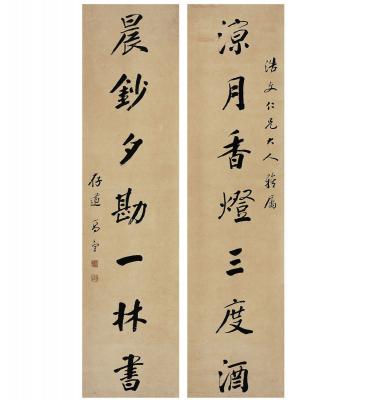 浩文仁兄大人雅属
凉月香燈三度酒
晨鈔夕勘一林書
存道